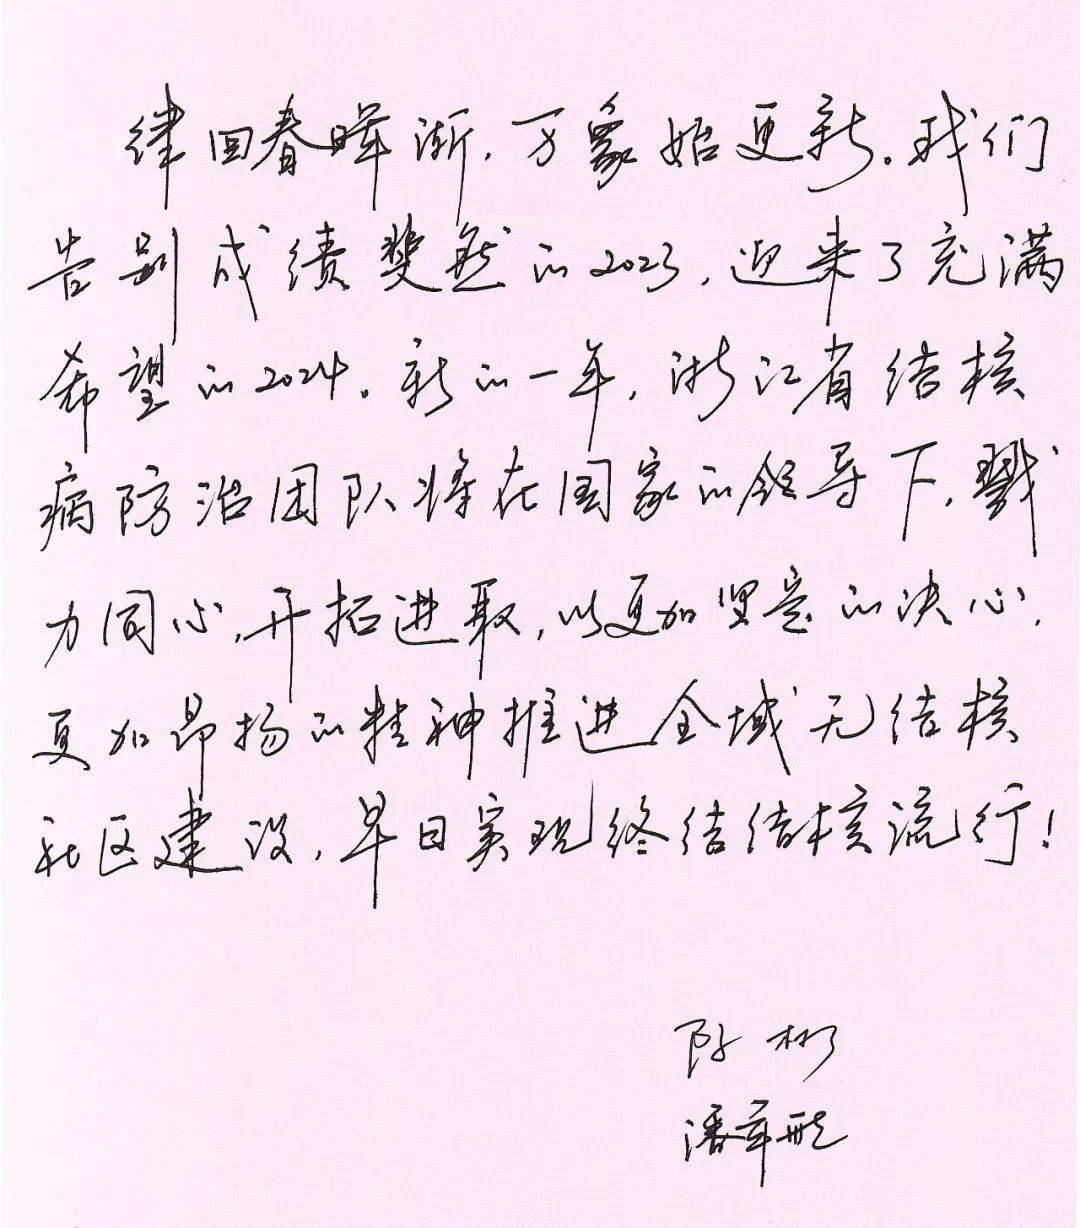 律回春晖渐，万象始更新。我们
告别成绩斐然的2023，迎来了充满
希望的2024。新的一年，浙江省结核
病防治团队将在国家的领导下，戮
力同心，开拓进取，以更加坚定的决心，
更加昂扬的精神推进全域无结核
社区建设，早日实现终结结核流行！
陈彬
潘军航